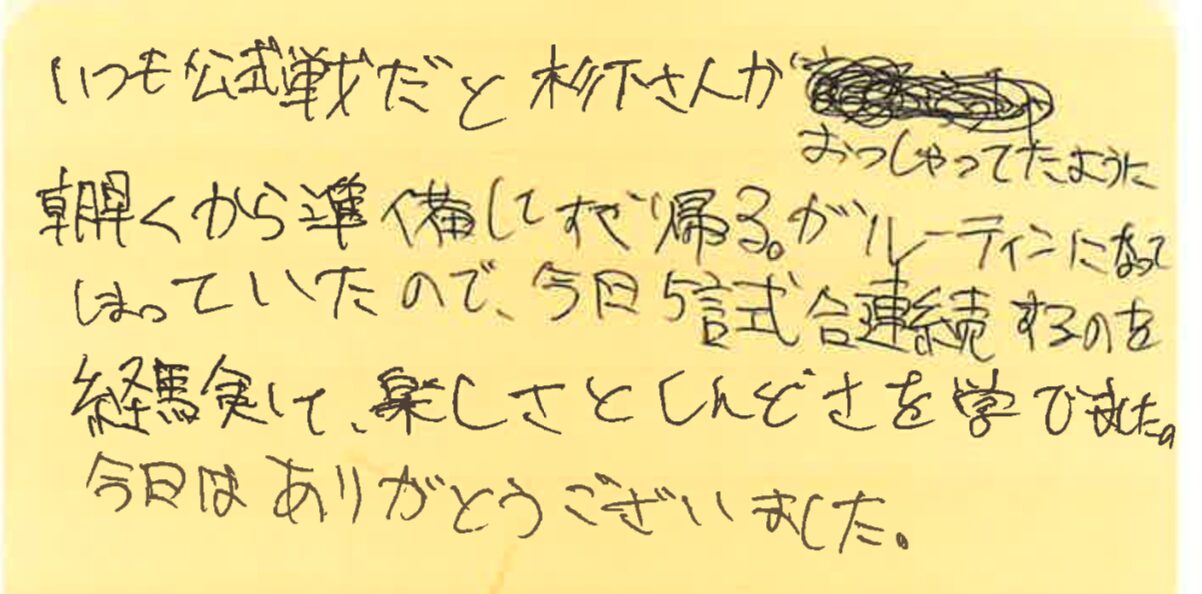 いつも公式戦だと杉下さんが
おっしゃってたように
朝早くから準備してすぐ帰る。がルーティンになって
しまっていたので、今日5試合連続するのを
経験して、楽しさとしんどさを学びました。
今日はありがとうございました。